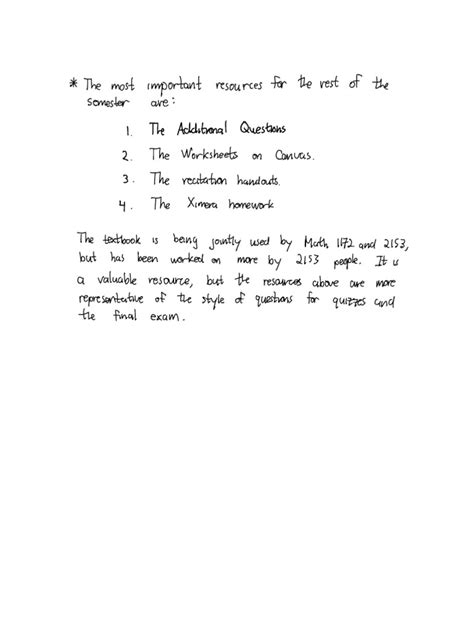 * The most important resources for the rest of the
semester are:
1. The Additional Questions
2. The Worksheets on Canvas.
3. The recitation handouts.
4. The Ximera homework
The textbook is being jointly used by Math 1172 and 2153,
but has been worked on more by 2153 people. It is
a valuable resource, but the resources above are more
representative of the style of questions for quizzes and
the final exam.